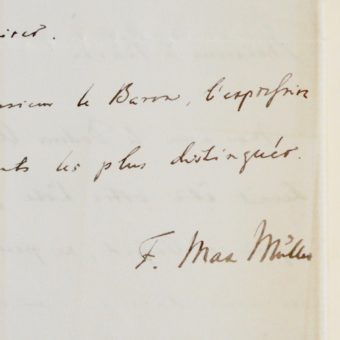 nsieur le Baron, l'expression
nts les plus distingués.
F. Max Müller